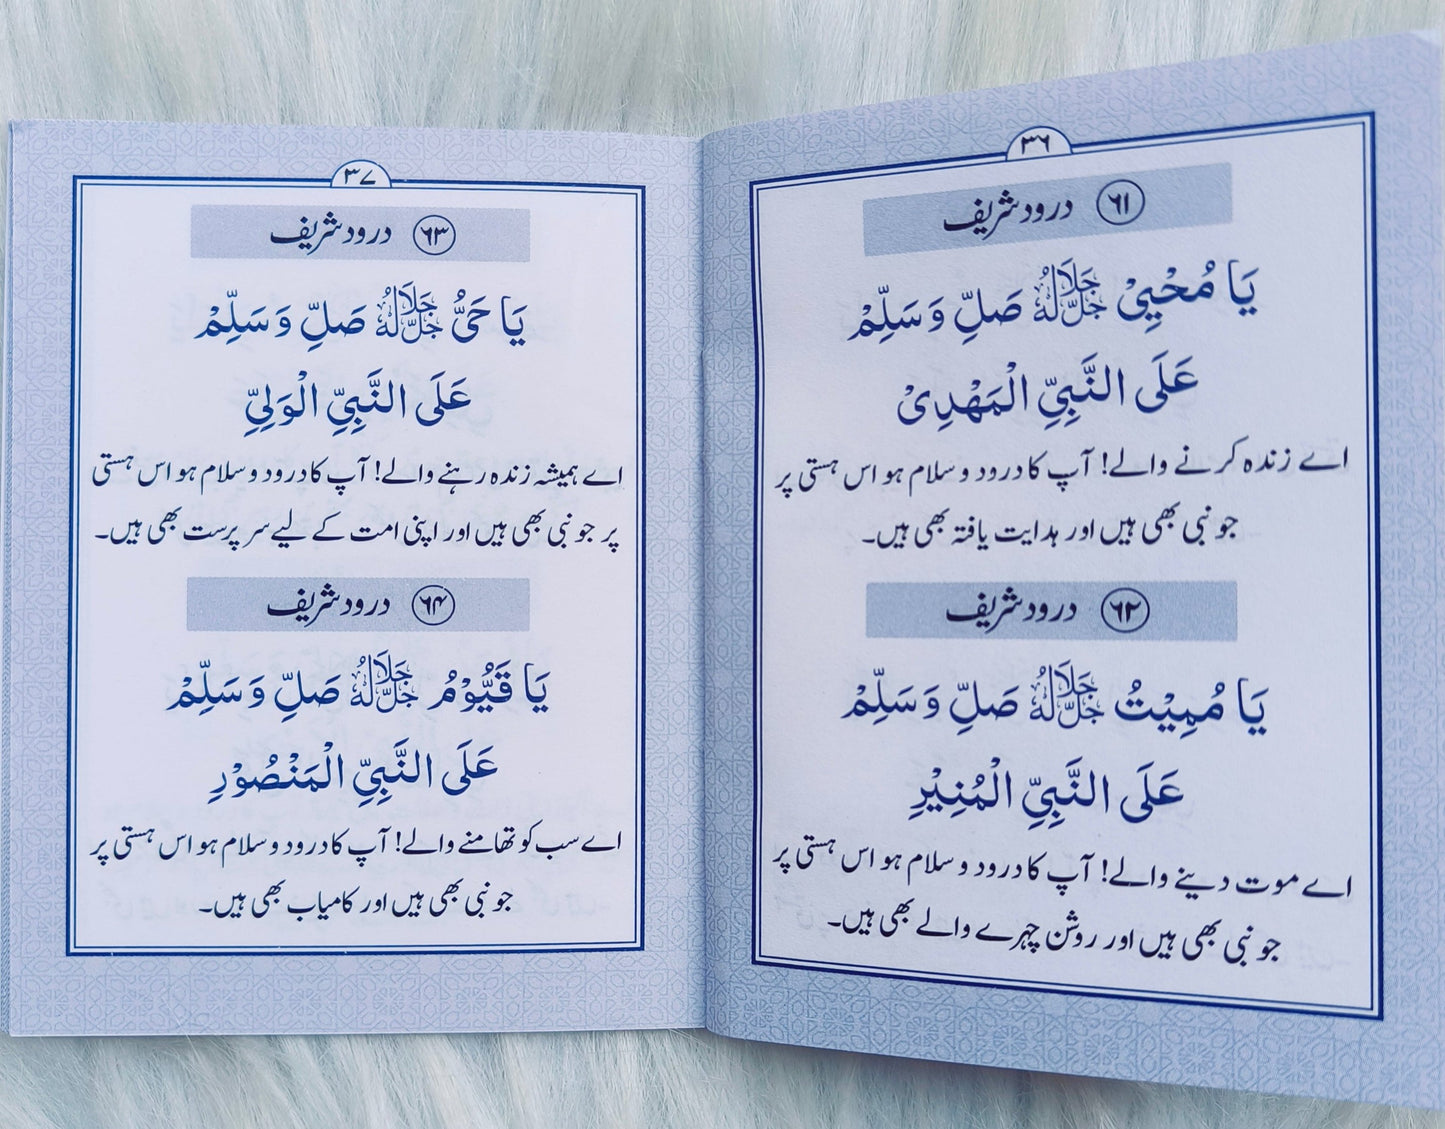 ۳۶
۶۱ درود شریف
یَا مُحْیِیْ جَلَّ جَلَالُہٗ صَلِّ وَسَلِّمْ
عَلَی النَّبِیِّ الْمَھْدِیْ
اے زندہ کرنے والے! آپ کا درود و سلام ہو اس ہستی پر
جو نبی بھی ہیں اور ہدایت یافتہ بھی ہیں۔
۶۲ درود شریف
یَا مُمِیْتُ جَلَّ جَلَالُہٗ صَلِّ وَسَلِّمْ
عَلَی النَّبِیِّ الْمُنِیْرِ
اے موت دینے والے! آپ کا درود و سلام ہو اس ہستی پر
جو نبی بھی ہیں اور روشن چہرے والے بھی ہیں۔
۳۷
۶۳ درود شریف
یَا حَیُّ جَلَّ جَلَالُہٗ صَلِّ وَسَلِّمْ
عَلَی النَّبِیِّ الْوَلِیِّ
اے ہمیشہ زندہ رہنے والے! آپ کا درود و سلام ہو اس ہستی
پر جو نبی بھی ہیں اور اپنی امت کے لیے سرپرست بھی ہیں۔
۶۴ درود شریف
یَا قَیُّوْمُ جَلَّ جَلَالُہٗ صَلِّ وَسَلِّمْ
عَلَی النَّبِیِّ الْمَنْصُوْرِ
اے سب کو تھامنے والے! آپ کا درود و سلام ہو اس ہستی پر
جو نبی بھی ہیں اور کامیاب بھی ہیں۔